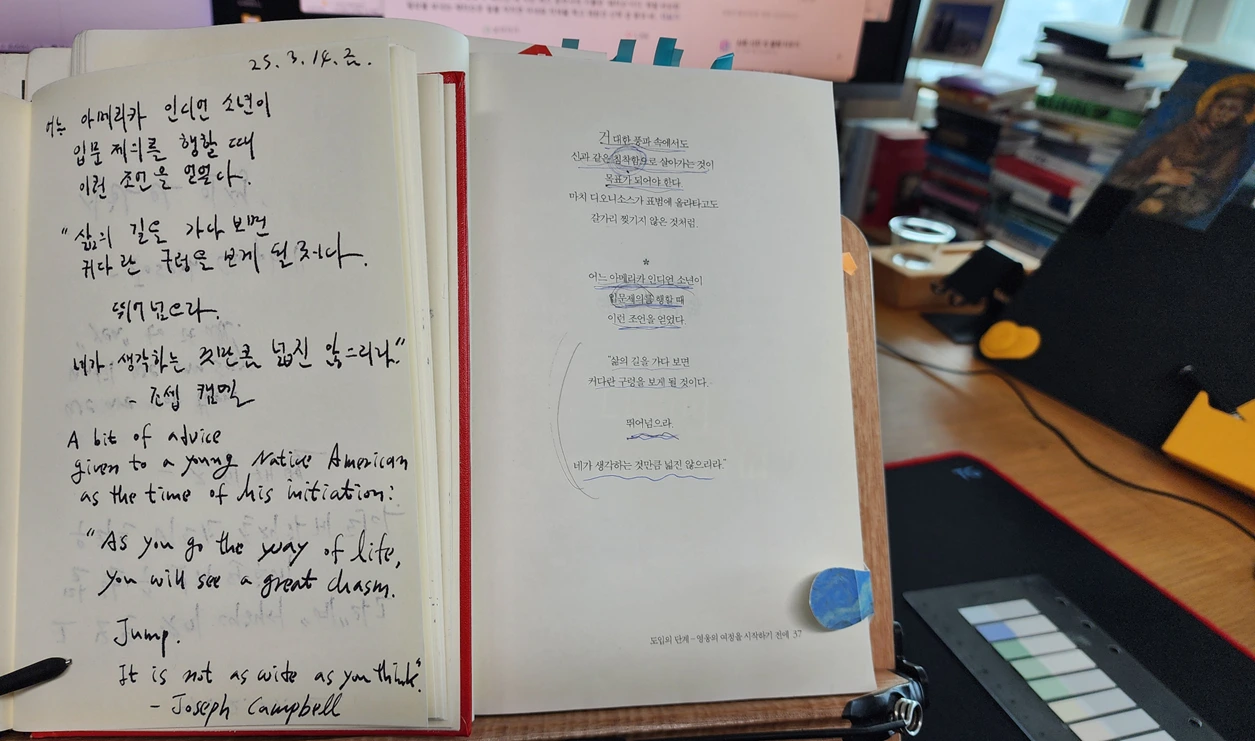 25. 3. 14. 금.
어느 아메리카 인디언 소년이
입문 제의를 행할 때
이런 조언을 얻었다.
"삶의 길을 가다 보면
커다란 구렁을 보게 될 것이다.
뛰어넘으라.
네가 생각하는 것만큼 넓진 않으리라."
- 조셉 캠벨
A bit of advice
given to a young Native American
as the time of his initiation:
"As you go the way of life,
you will see a great chasm.
Jump.
It is not as wide as you think."
- Joseph Campbell
거대한 풍파 속에서도
신과 같은 침착함으로 살아가는 것이
목표가 되어야 한다.
마치 디오니소스가 표범에 올라타고도
갈가리 찢기지 않은 것처럼.
*
어느 아메리카 인디언 소년이
입문제의를 행할 때
이런 조언을 얻었다.
"삶의 길을 가다 보면
커다란 구렁을 보게 될 것이다.
뛰어넘으라.
네가 생각하는 것만큼 넓진 않으리라."
도입의 단계 - 영웅의 여정을 시작하기 전에 37